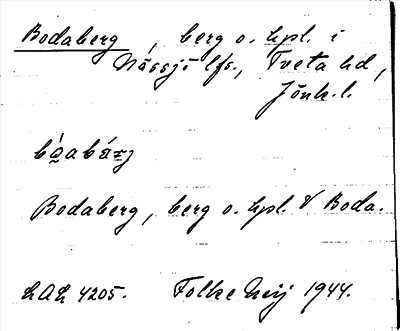 Bodaberg, berg o. hpl. i
Nässjö lfs., Tveta hd,
Jönk. l.
bo̠̒gabárj
Bodaberg, berg o. hpl. V Boda.
LAL 4205. Folke Meij 1944.